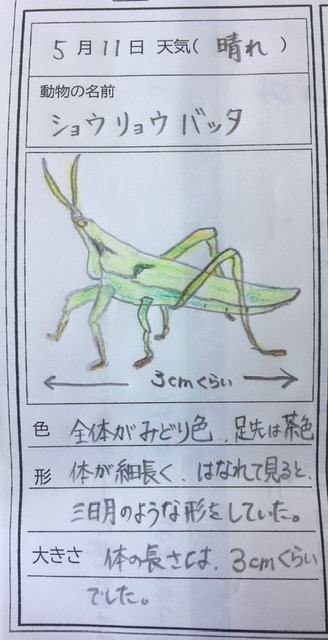 5月11日 天気(晴れ)
動物の名前
ショウリョウバッタ
3cmくらい
色 全体がみどり色、足先は茶色
形 体が細長く、はなれて見ると、
三日月のような形をしていた。
大きさ 体の長さは、3cmくらい
でした。